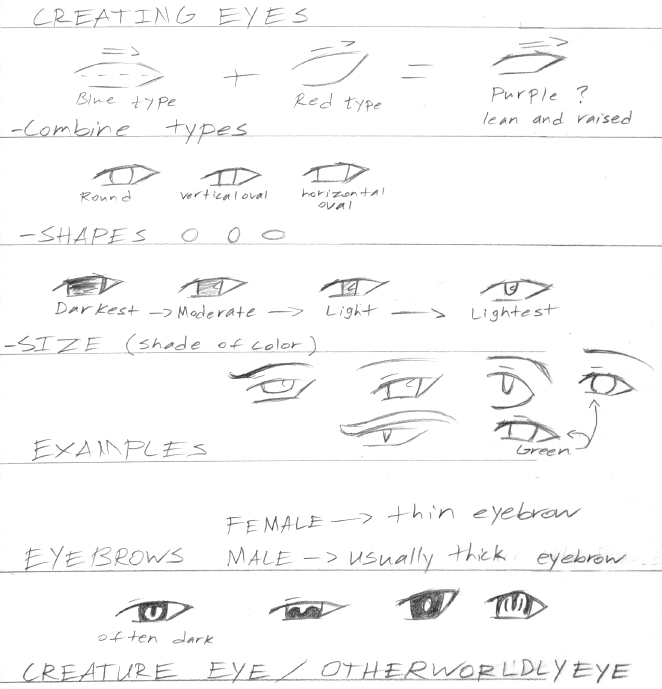 CREATING EYES
+ =
Blue type Red type Purple ?
lean and raised
-Combine types
Round vertical oval horizontal
oval
-SHAPES
Darkest → Moderate → Light → Lightest
-SIZE (shade of color)
Green
EXAMPLES
FEMALE → thin eyebrow
EYEBROWS MALE → usually thick eyebrow
often dark
CREATURE EYE / OTHERWORLDLY EYE